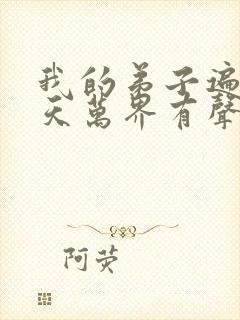 我的弟子遍
天萬界有聲
阿荧